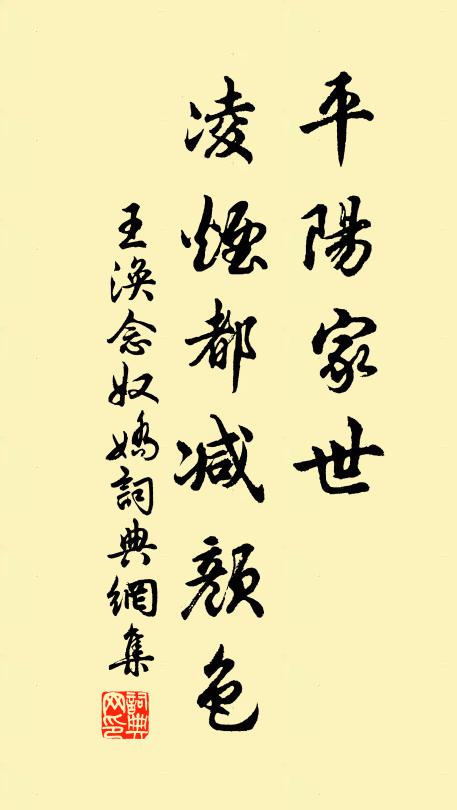 平陽家世
凌煙都减顏色
王渙念奴嬌詞典網集
詞典網印